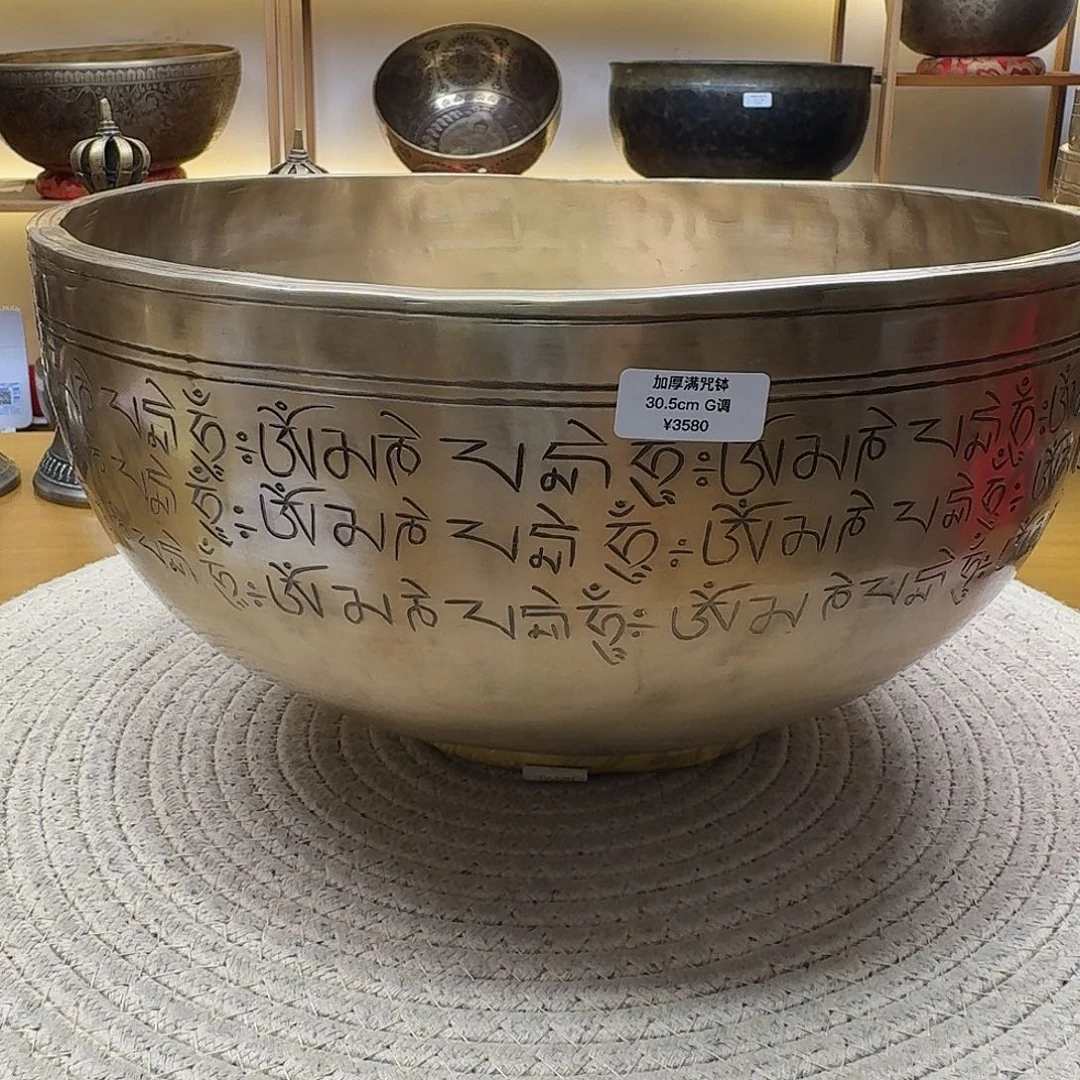 加厚满咒钵
30.5cm G调
¥3580
པདྨེ ཧཱུྃ༔ ཨོཾ མ ཎི པདྨེ ཧཱུྃ༔ ཨོཾ མ ཎི པདྨེ ཧཱུྃ༔ ཨོཾ
པདྨེ ཧཱུྃ༔ ཨོཾ མ ཎི པདྨེ ཧཱུྃ༔ ཨོཾ མ ཎི པདྨེ ཧཱུྃ༔ ཨོཾ
པདྨེ ཧཱུྃ༔ ཨོཾ མ ཎི པདྨེ ཧཱུྃ༔ ཨོཾ མ ཎི པདྨེ ཧཱུྃ༔